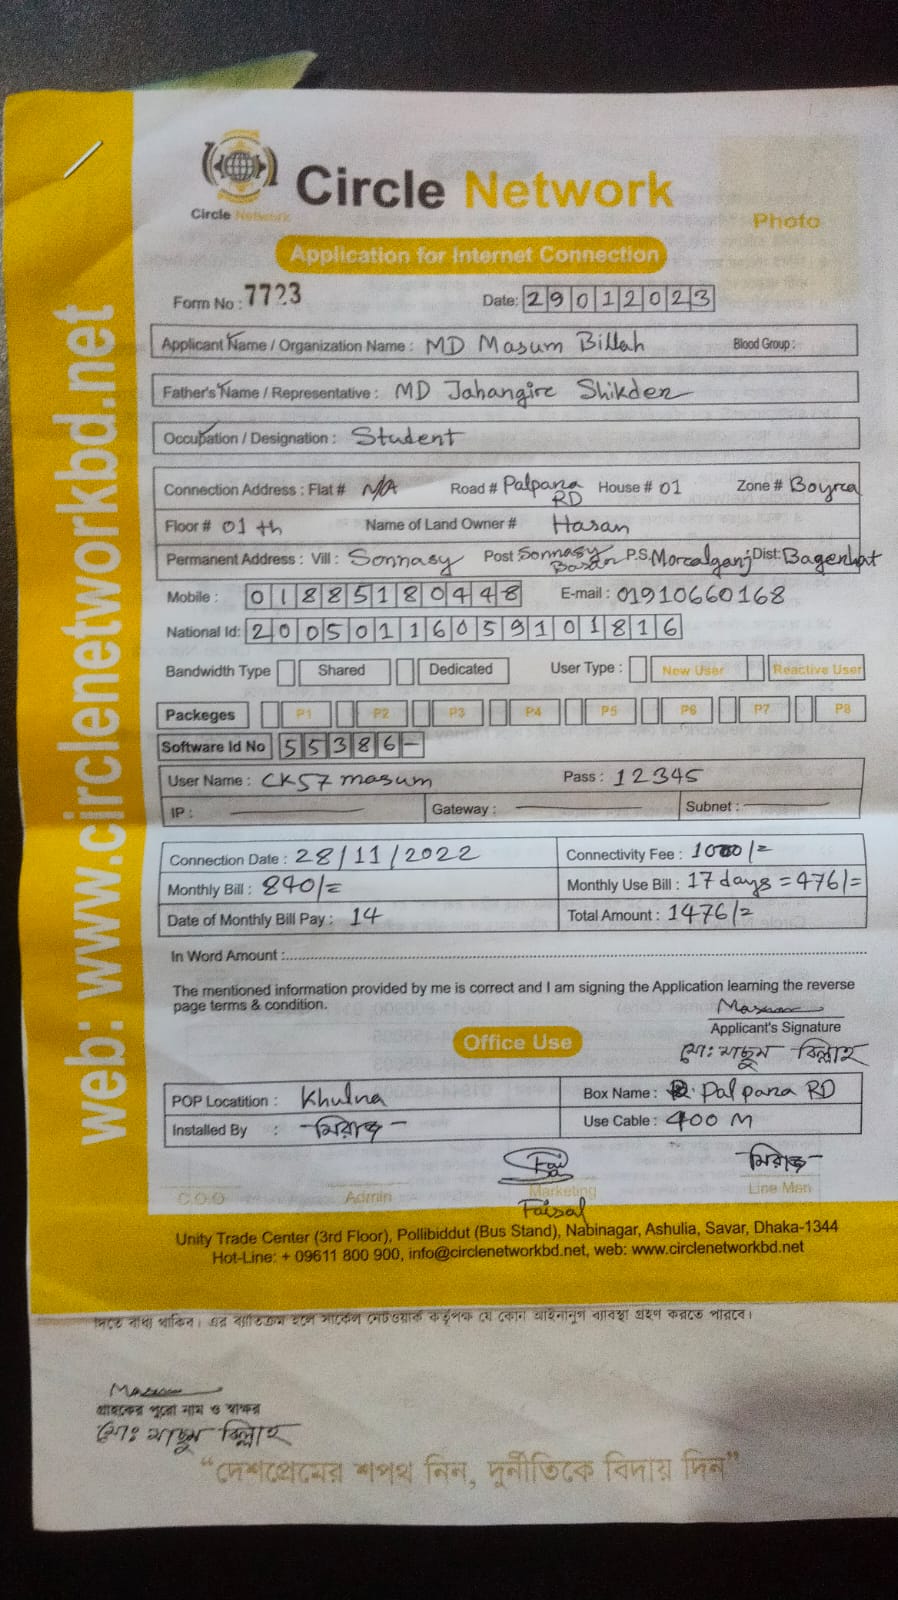 Circle Network
Circle Network
Photo
Application for Internet Connection
Form No : 7723 Date: 29012023
Applicant Name / Organization Name : MD Masum Billah Blood Group :
Father's Name / Representative : MD Jahangire Shikder
Occupation / Designation : Student
Connection Address : Flat # N/A Road # Palpara RD House # 01 Zone # Boyra
Floor # 01 th Name of Land Owner # Hasan
Permanent Address : Vill : Sonnasy Post Sonnasy Bazar P.S. Morealganj Dist: Bagerhat
Mobile : 01885180448 E-mail : 01910660168
National Id: 20050116059101816
Bandwidth Type Shared Dedicated User Type : New User Reactive User
Packeges P1 P2 P3 P4 P5 P6 P7 P8
Software Id No 55386-
User Name : CK57masum Pass : 12345
IP : Gateway : Subnet :
Connection Date : 28/11/2022 Connectivity Fee : 1000/=
Monthly Bill : 840/= Monthly Use Bill : 17 days = 476/=
Date of Monthly Bill Pay : 14 Total Amount : 1476/=
In Word Amount :
The mentioned information provided by me is correct and I am signing the Application learning the reverse
page terms & condition.
Masum
Applicant's Signature
মোঃ মাছুম বিল্লাহ
Office Use
POP Locatition : Khulna Box Name : Palpara RD
Installed By : মিরাজ Use Cable : 400 M
মিরাজ
C.O.O Admin Marketing Line Man
Faisal
Unity Trade Center (3rd Floor), Pollibiddut (Bus Stand), Nabinagar, Ashulia, Savar, Dhaka-1344
Hot-Line: + 09611 800 900, info@circlenetworkbd.net, web: www.circlenetworkbd.net
web: www.circlenetworkbd.net
দিতে বাধ্য থাকিব। এর ব্যতিক্রম হলে সার্কেল নেটওয়ার্ক কর্তৃপক্ষ যে কোন আইনানুগ ব্যবস্থা গ্রহণ করতে পারবে।
Masum
গ্রাহকের পুরো নাম ও স্বাক্ষর
মোঃ মাছুম বিল্লাহ
“দেশপ্রেমের শপথ নিন, দুর্নীতিকে বিদায় দিন”